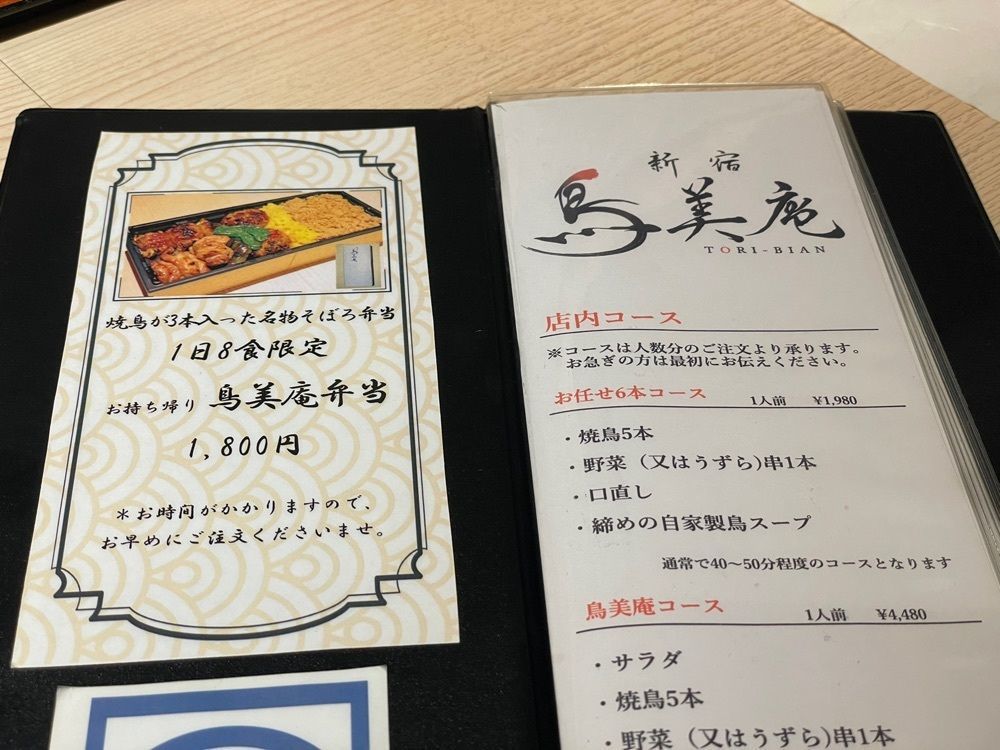 焼鳥が3本入った名物そぼろ弁当
1日8食限定
お持ち帰り 鳥美庵弁当
1,800円
＊お時間がかかりますので、
お早めにご注文くださいませ。
新宿
鳥美庵
TORI-BIAN
店内コース
※コースは人数分のご注文より承ります。
お急ぎの方は最初にお伝えください。
お任せ6本コース 1人前 ¥1,980
・焼鳥5本
・野菜（又はうずら)串1本
・口直し
・締めの自家製鳥スープ
通常で40〜50分程度のコースとなります
鳥美庵コース 1人前 ¥4,480
・サラダ
・焼鳥5本
・野菜（又はうずら)串1本